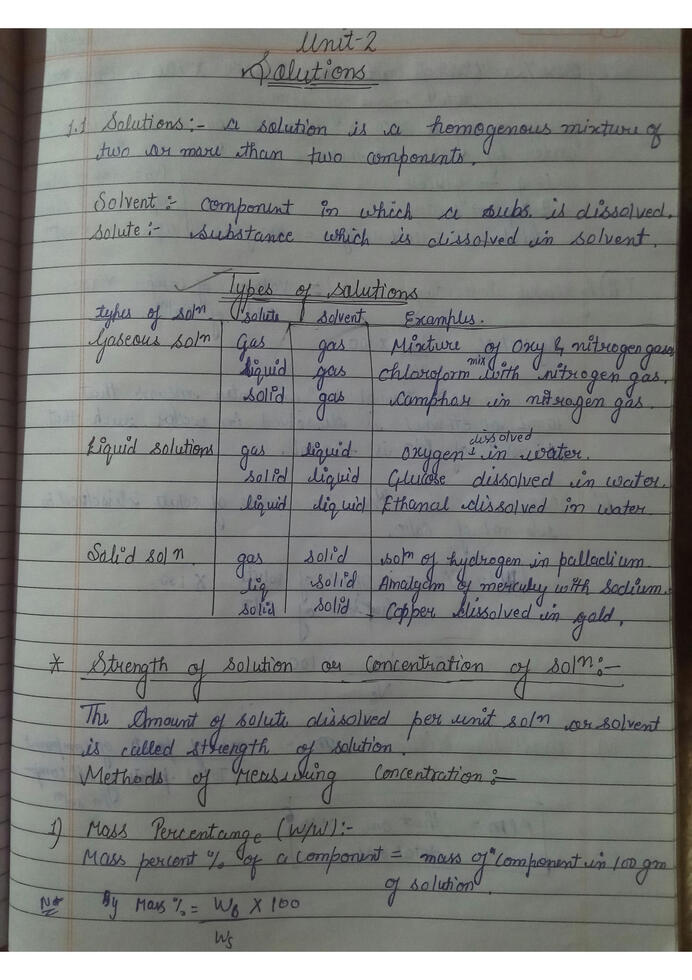 Unit-2
Solutions
1.1 Solutions:- A solution is a homogenous mixture of
two or more than two components.
Solvent:- component in which a subs. is dissolved.
Solute:- substance which is dissolved in solvent.
Types of solutions
types of soln solute solvent Examples.
Gaseous soln gas gas Mixture of Oxy & nitrogen gases
liquid gas chloroform mix with nitrogen gas.
solid gas camphor in nitrogen gas.
Liquid solutions gas liquid oxygen dissolved in water.
solid liquid Glucose dissolved in water.
liquid liquid Ethanal dissolved in water.
Solid soln. gas solid soln of hydrogen in palladium.
liq solid Amalgam of mercury with sodium.
solid solid Copper dissolved in gold.
* Strength of solution or Concentration of soln:-
The Amount of solute dissolved per unit soln or solvent
is called strength of solution.
Methods of Measuring Concentration:-
1) Mass Percentange (W/W):-
Mass percent % of a component = mass of component in 100 gm
of solution
By Mass % = WB X 100
Ws